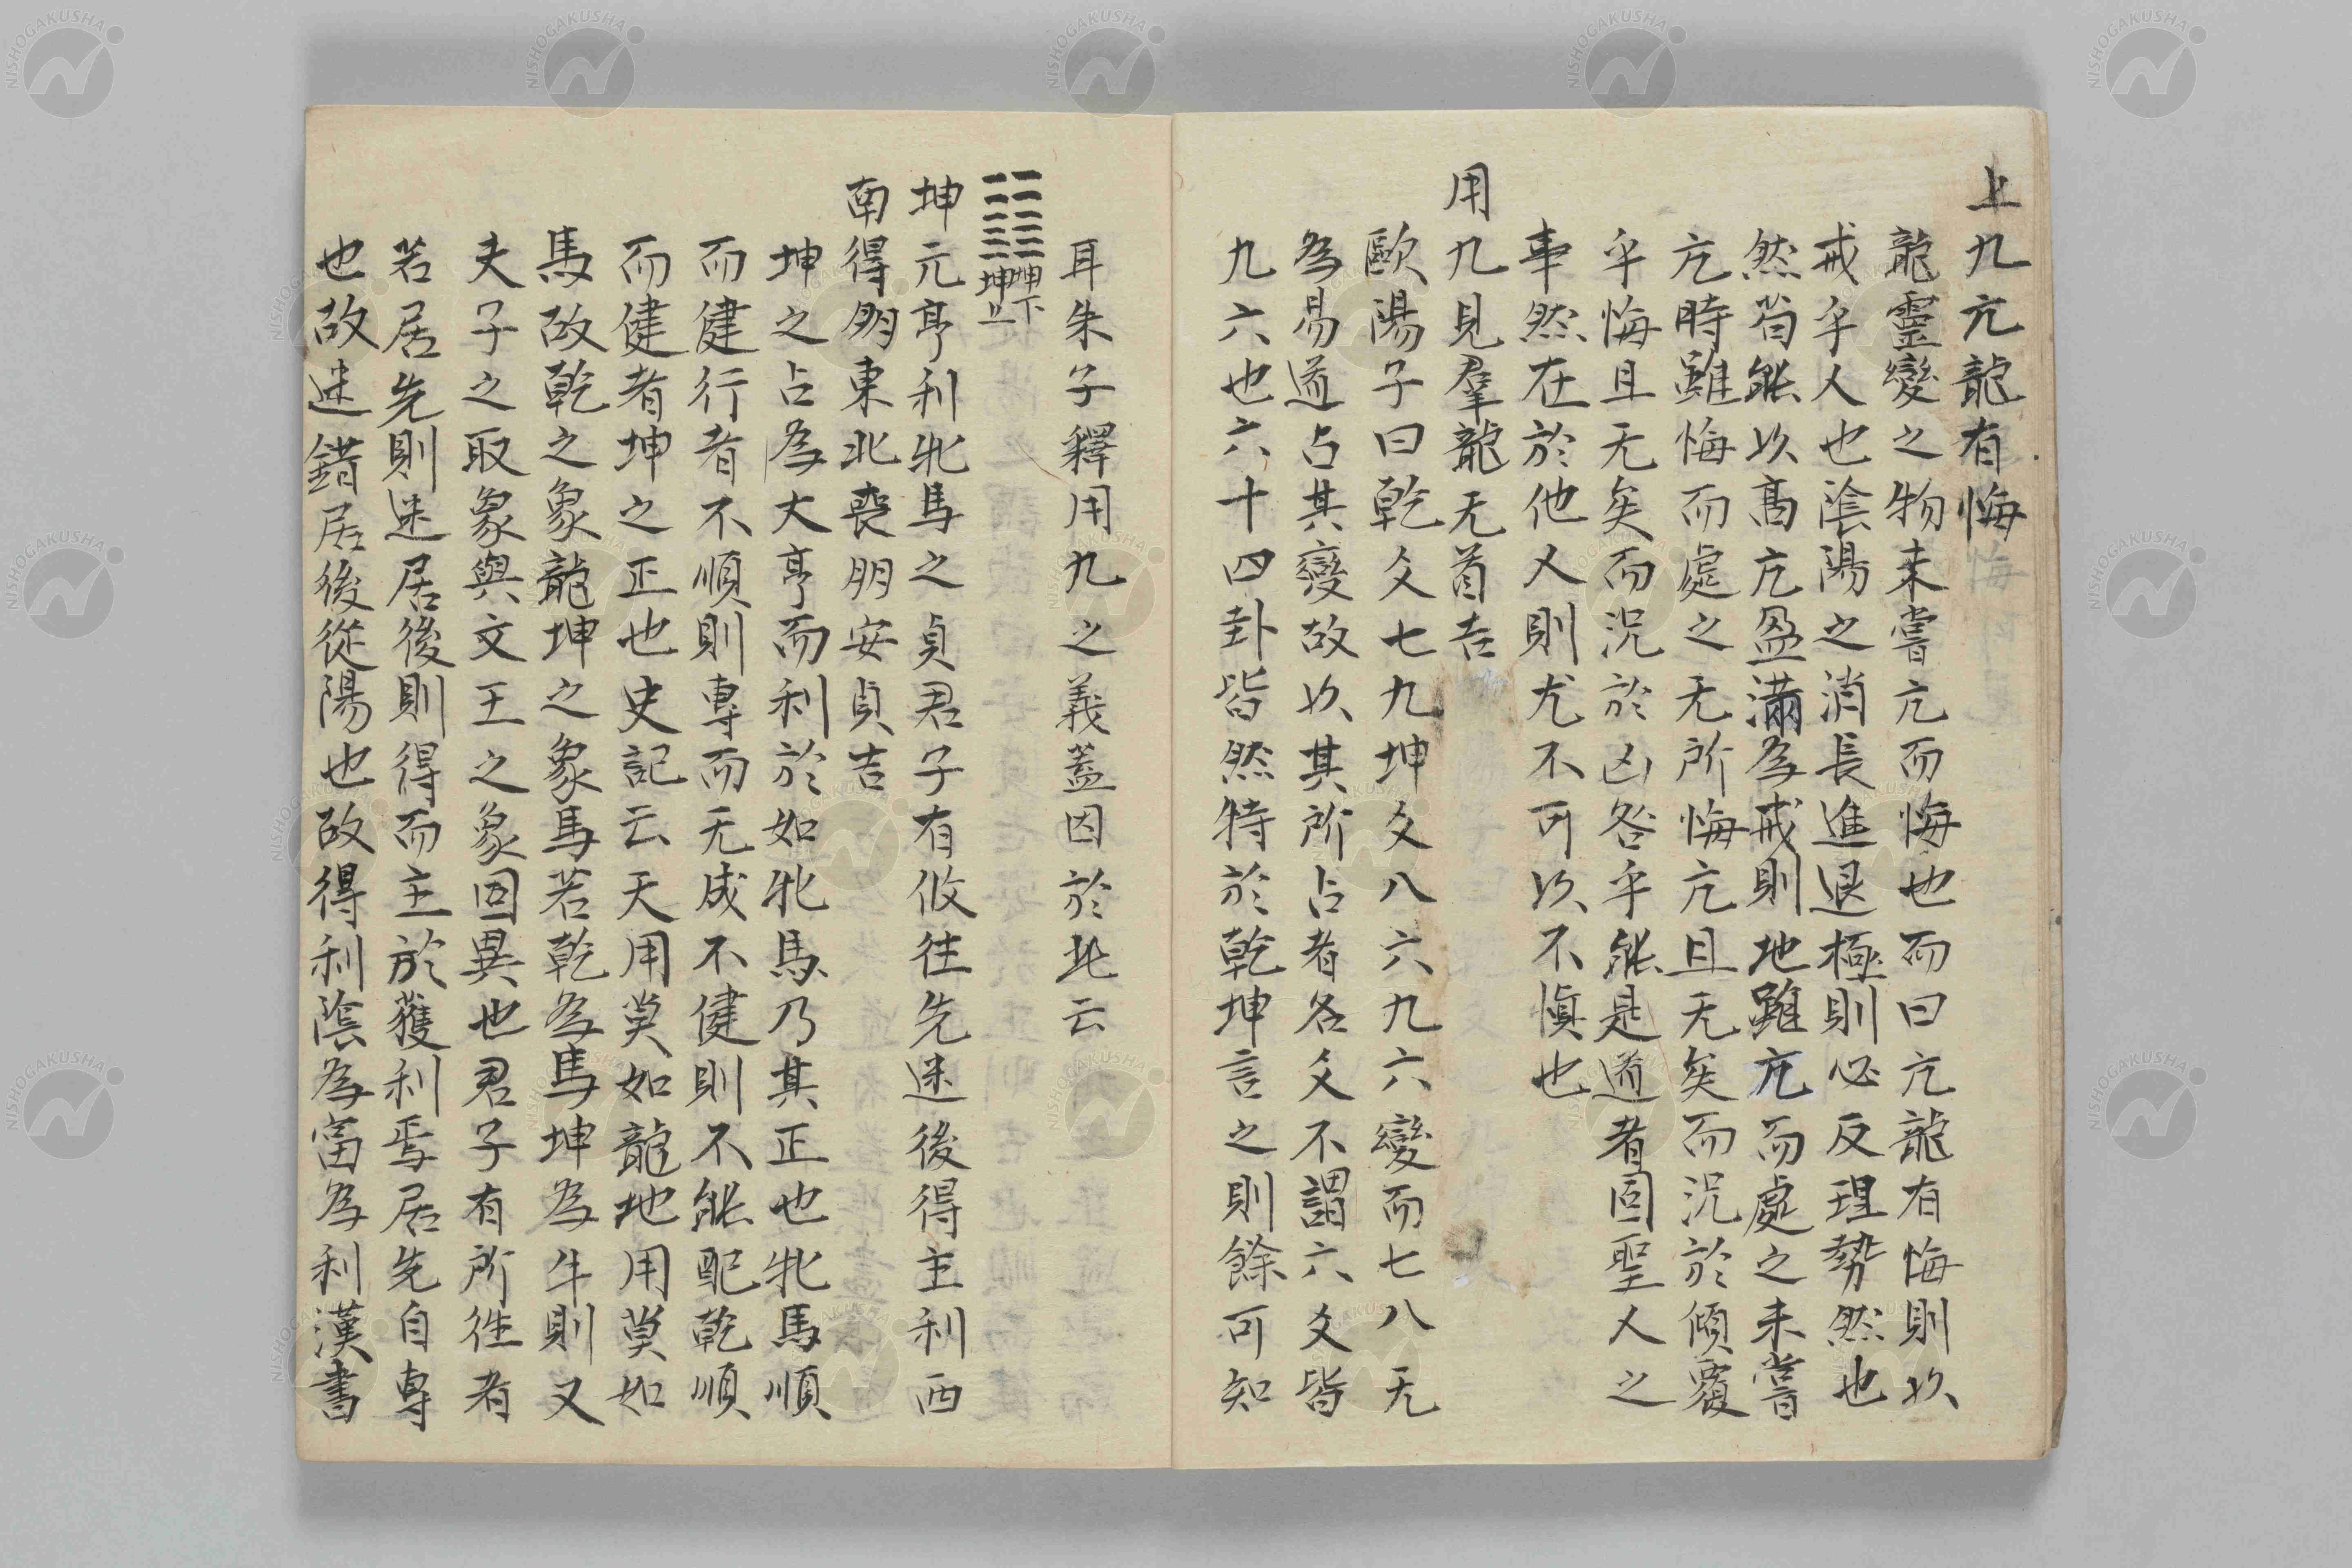 上九亢龍有悔
龍靈變之物未嘗亢而悔也而曰亢龍有悔則以
戒乎人也陰陽之消長進退極則必反理勢然也
然苟能以高亢盈滿為戒則地雖亢而處之未嘗
亢時雖悔而處之无所悔亢且无矣而況於傾覆
乎悔且无矣而況於凶咎乎能是道者固聖人之
事然在於他人則尤不可以不慎也
用九見羣龍无首吉
歐陽子曰乾爻七九坤爻八六九六變而七八无
為易道占其變故以其所占者各爻不謂六爻皆
九六也六十四卦皆然特於乾坤言之則餘可知
耳朱子釋用九之義蓋因於此云
坤下
坤上
坤元亨利牝馬之貞君子有攸往先迷後得主利西
南得朋東北喪朋安貞吉
坤之占為大亨而利於如牝馬乃其正也牝馬順
而健行者不順則專而无成不健則不能配乾順
而健者坤之正也史記云天用莫如龍地用莫如
馬故乾之象龍坤之象馬若乾為馬坤為牛則又
夫子之取象與文王之象固異也君子有所往者
若居先則迷居後則得而主於獲利焉居先自專
也故迷錯居後從陽也故得利陰為富為利漢書
NISHOGAKUSHA